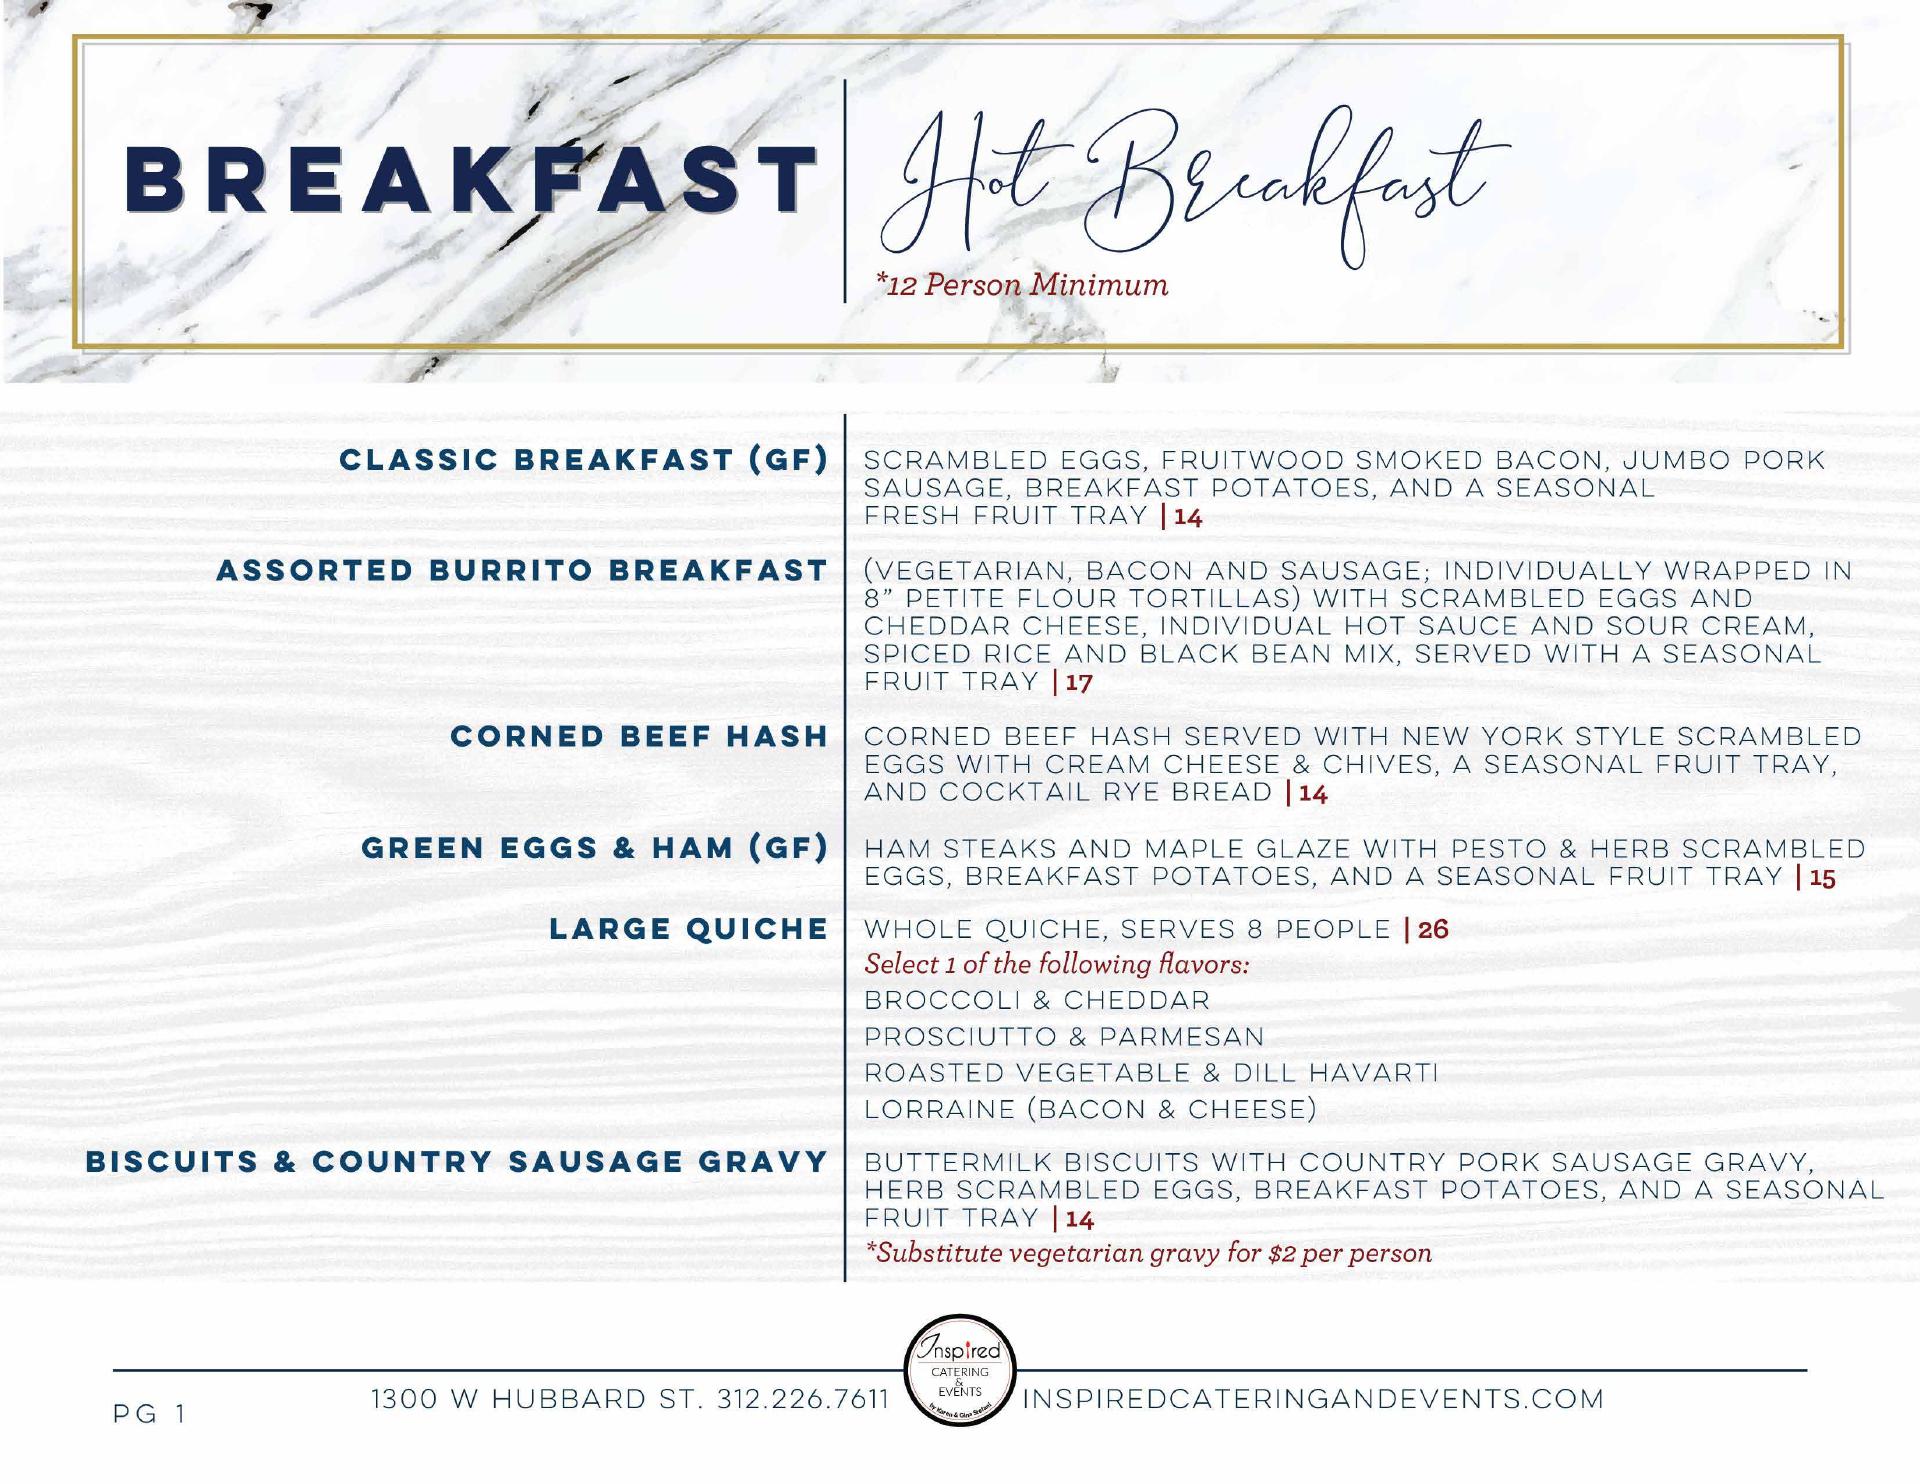 BREAKFAST
Hot Breakfast
*12 Person Minimum
CLASSIC BREAKFAST (GF)
SCRAMBLED EGGS, FRUITWOOD SMOKED BACON, JUMBO PORK
SAUSAGE, BREAKFAST POTATOES, AND A SEASONAL
FRESH FRUIT TRAY | 14
ASSORTED BURRITO BREAKFAST
(VEGETARIAN, BACON AND SAUSAGE; INDIVIDUALLY WRAPPED IN
8” PETITE FLOUR TORTILLAS) WITH SCRAMBLED EGGS AND
CHEDDAR CHEESE, INDIVIDUAL HOT SAUCE AND SOUR CREAM,
SPICED RICE AND BLACK BEAN MIX, SERVED WITH A SEASONAL
FRUIT TRAY | 17
CORNED BEEF HASH
CORNED BEEF HASH SERVED WITH NEW YORK STYLE SCRAMBLED
EGGS WITH CREAM CHEESE & CHIVES, A SEASONAL FRUIT TRAY,
AND COCKTAIL RYE BREAD | 14
GREEN EGGS & HAM (GF)
HAM STEAKS AND MAPLE GLAZE WITH PESTO & HERB SCRAMBLED
EGGS, BREAKFAST POTATOES, AND A SEASONAL FRUIT TRAY | 15
LARGE QUICHE
WHOLE QUICHE, SERVES 8 PEOPLE | 26
Select 1 of the following flavors:
BROCCOLI & CHEDDAR
PROSCIUTTO & PARMESAN
ROASTED VEGETABLE & DILL HAVARTI
LORRAINE (BACON & CHEESE)
BISCUITS & COUNTRY SAUSAGE GRAVY
BUTTERMILK BISCUITS WITH COUNTRY PORK SAUSAGE GRAVY,
HERB SCRAMBLED EGGS, BREAKFAST POTATOES, AND A SEASONAL
FRUIT TRAY | 14
*Substitute vegetarian gravy for $2 per person
PG 1
1300 W HUBBARD ST. 312.226.7611
Inspired
CATERING
&
EVENTS
by Karen & Gina Stefani
INSPIREDCATERINGANDEVENTS.COM